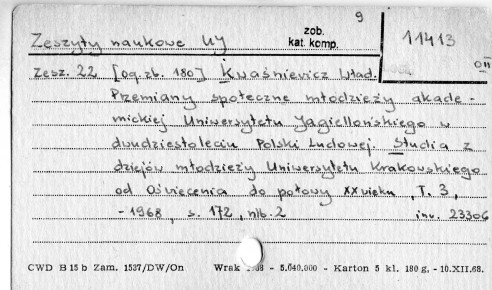 9
Zeszyty naukowe UJ
zob.
kat. komp.
11413
on
Zesz. 22 [og. zb. 180] Kwaśniewicz Wład.
Przemiany społeczne młodzieży akade-
mickiej Uniwersytetu Jagiellońskiego w
dwudziestoleciu Polski Ludowej. Studia z
dziejów młodzieży Uniwersytetu Krakowskiego
od Oświecenia do połowy XX wieku, T. 3,
-1968, s. 172, nlb. 2 inw. 23306
CWD B 15 b Zam. 1537/DW/On Wrak - 5.640.000 - Karton 5 kl. 180 g. - 10.XII.68.